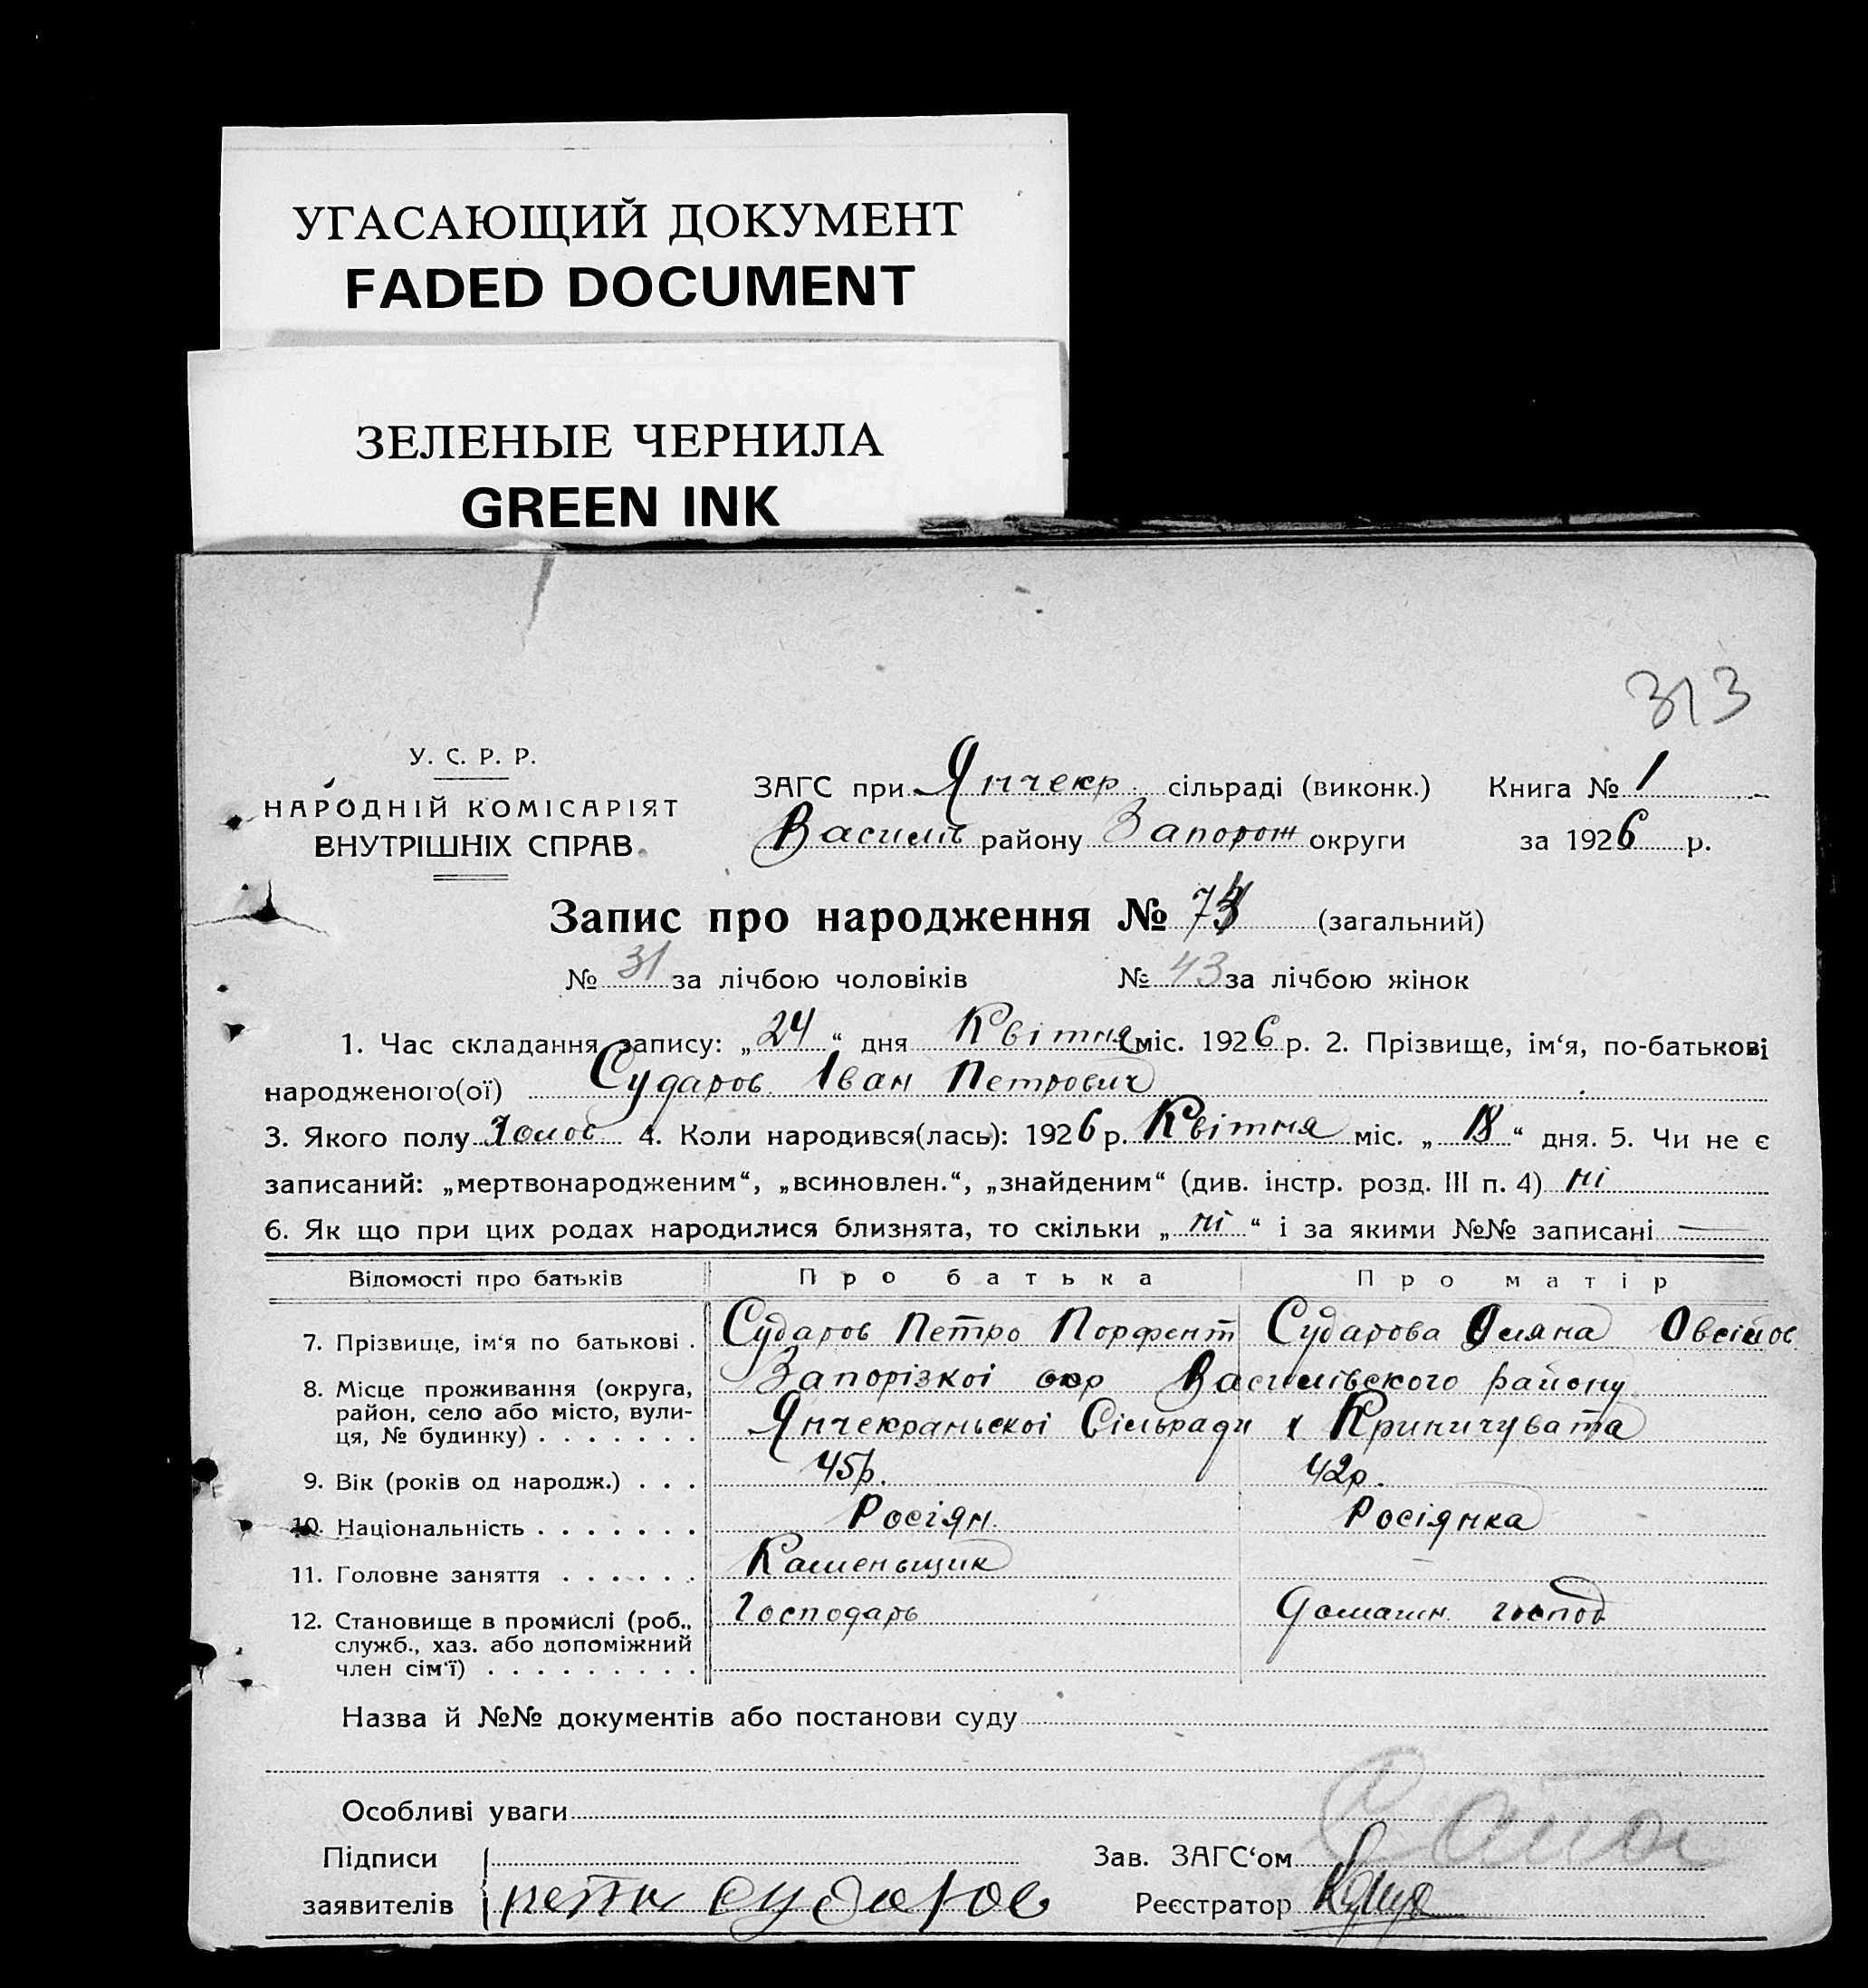 УГАСАЮЩИЙ ДОКУМЕНТ
FADED DOCUMENT
ЗЕЛЕНЫЕ ЧЕРНИЛА
GREEN INK
313
У. С. Р. Р.
НАРОДНІЙ КОМІСАРІЯТ
ВНУТРІШНІХ СПРАВ
ЗАГС при Янчекр сільраді (виконк.) Книга № 1
Василів району Запорож округи за 1926 р.
Запис про народження № 74 (загальний)
№ 31 за лічбою чоловіків № 43 за лічбою жінок
1. Час складання запису: „24“ дня Квітня міс. 1926 р. 2. Прізвище, ім‘я, по-батькові
народженого(ої) Сударов Іван Петрович
3. Якого полу Чолов 4. Коли народився(лась): 1926 р. Квітня міс. „18“ дня. 5. Чи не є
записаний: „мертвонародженим“, „всиновлен.“, „знайденим“ (див. інстр. розд. III п. 4) ні
6. Як що при цих родах народилися близнята, то скільки „ні“ і за якими №№ записані —
Відомості про батьків Про батька Про матір
7. Прізвище, ім‘я по батькові . Сударов Петро Порфент Сударова Уляна Овсійов
8. Місце проживання (округа, Запорізкоі окр Василівского району
район, село або місто, вули-
ця, № будинку) . . . . . . . Янчекраньскоі Сільради х Криничувата
9. Вік (років од народж.) . . . 45р. 42р.
10. Національність . . . . . . . Росіян. Росіянка
11. Головне заняття . . . . . . Каменьщик
12. Становище в промислі (роб., Господарь Домашн. господ
служб., хаз. або допоміжний
член сім‘ї) . . . . . . . . .
Назва й №№ документів або постанови суду
Особливі уваги
Підписи Зав. ЗАГС‘ом
заявителів Сударов Реєстратор